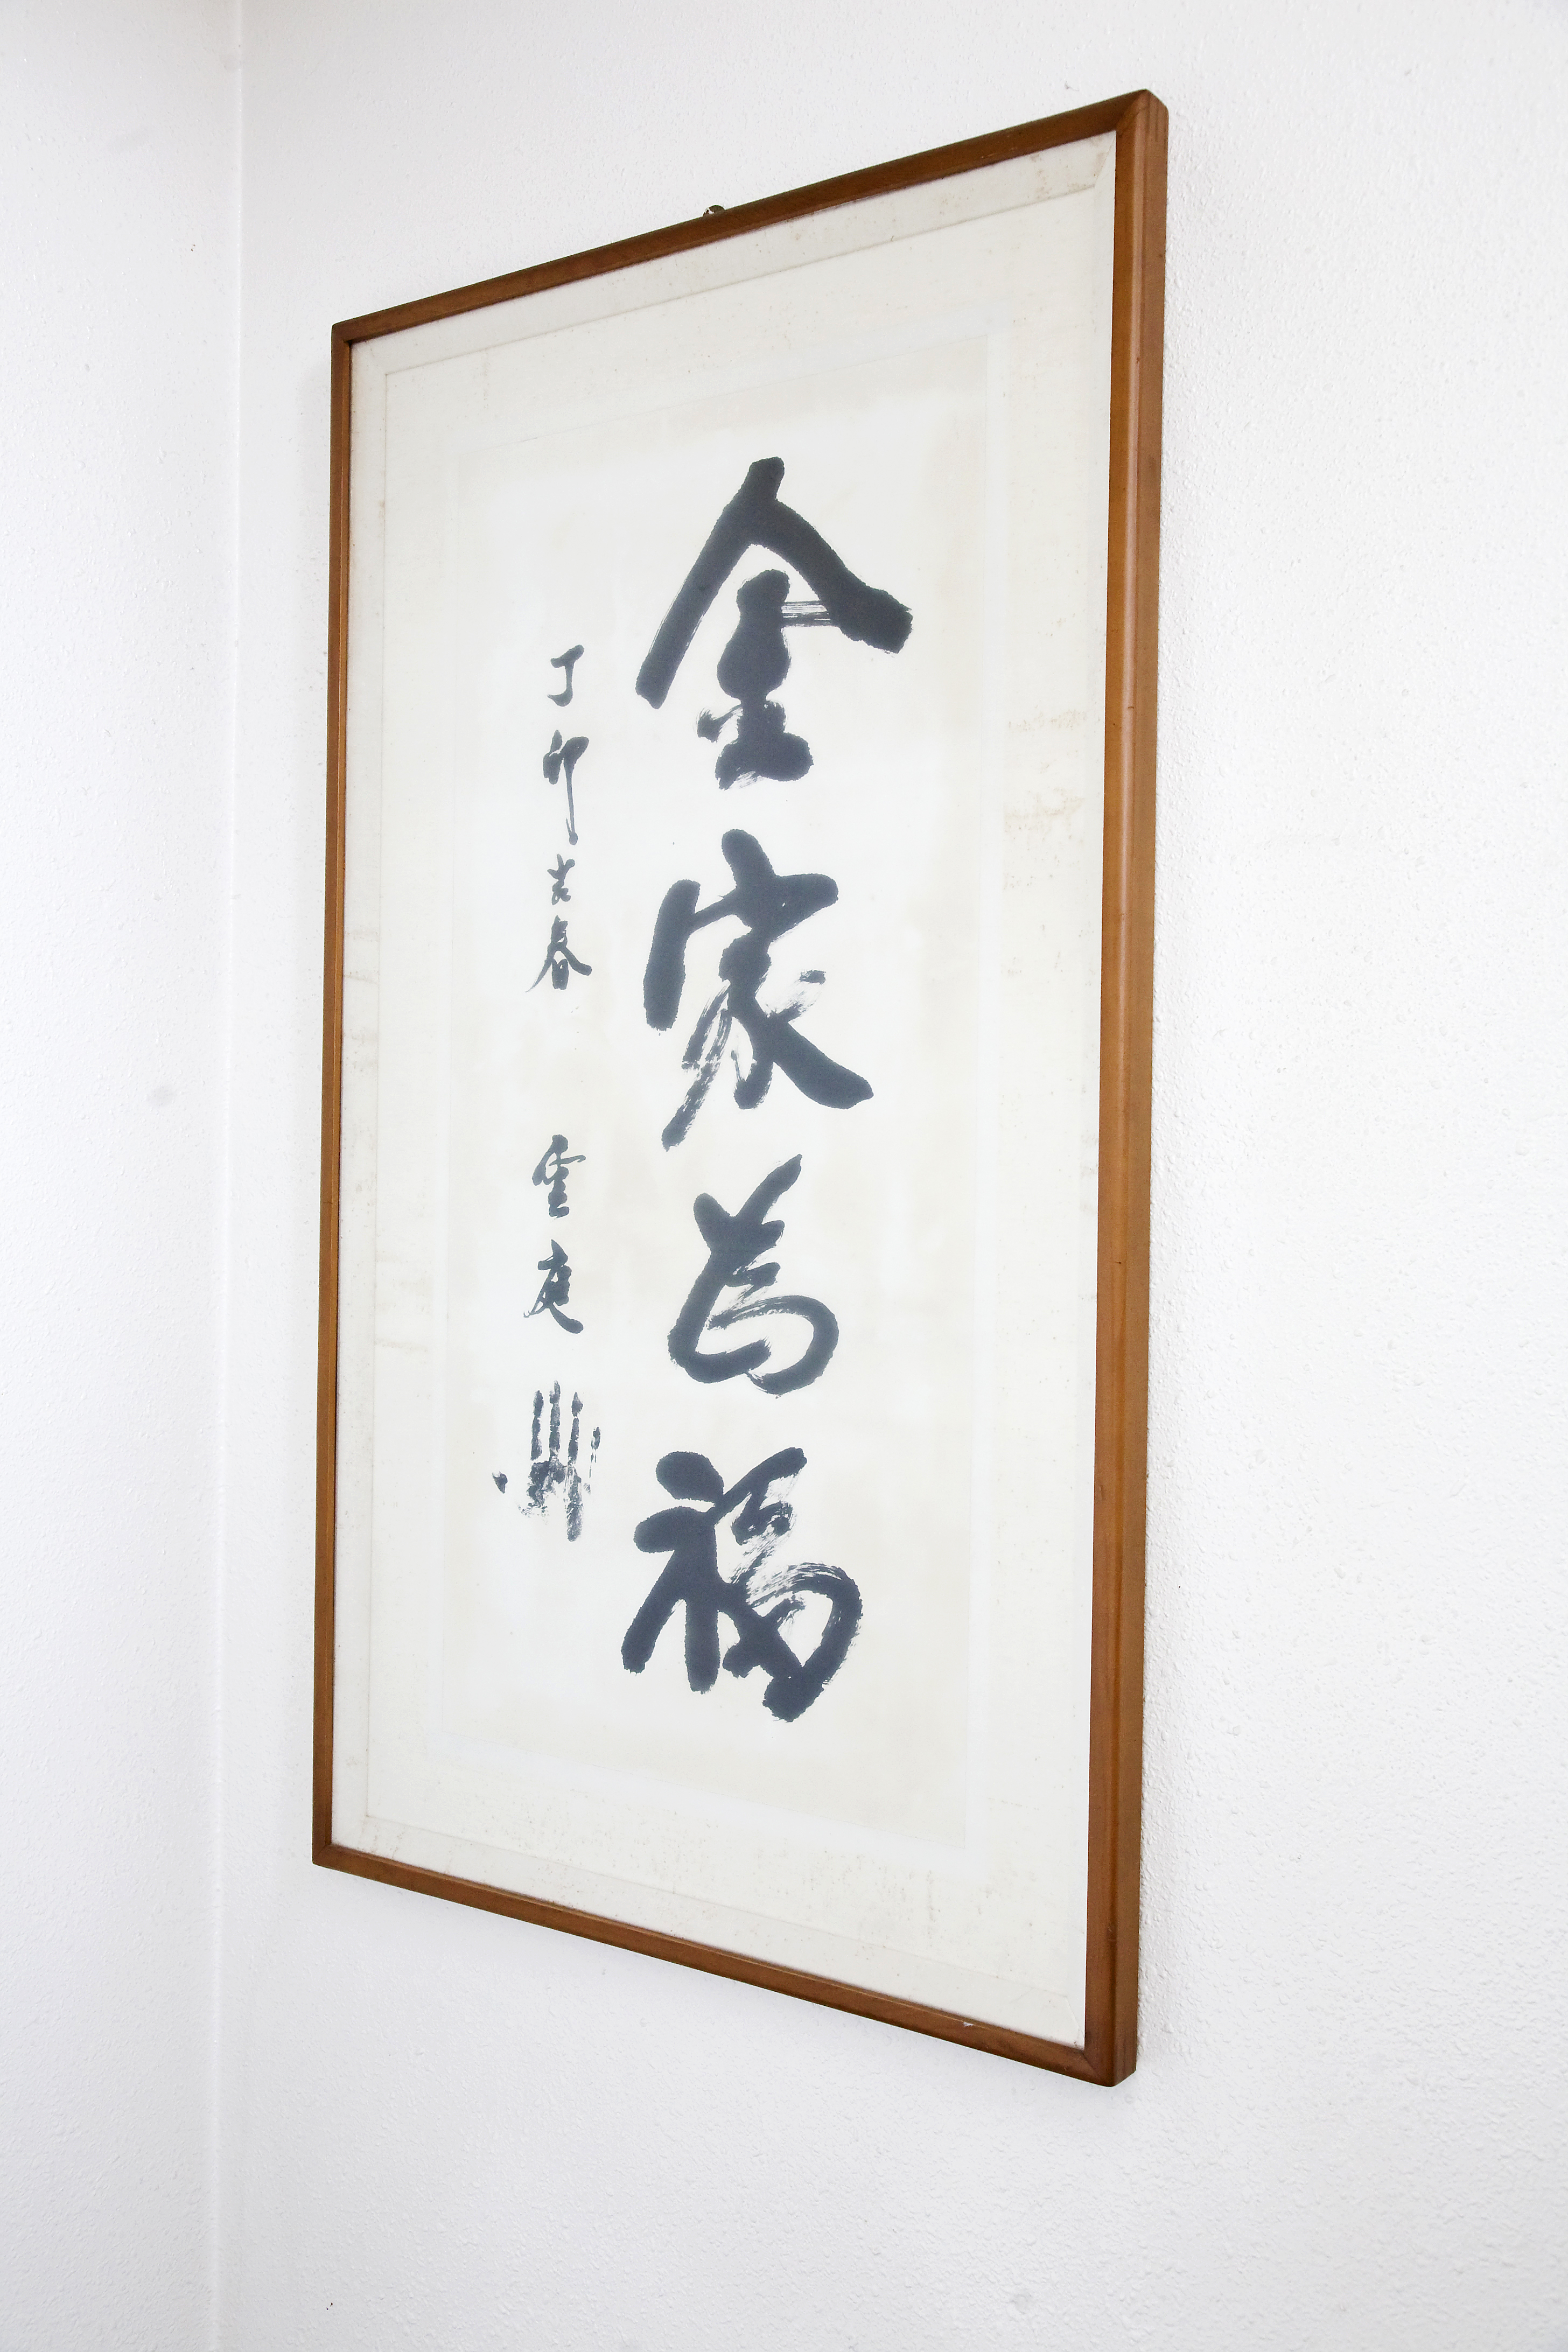 金家萬福
丁卯吉春 雲庭